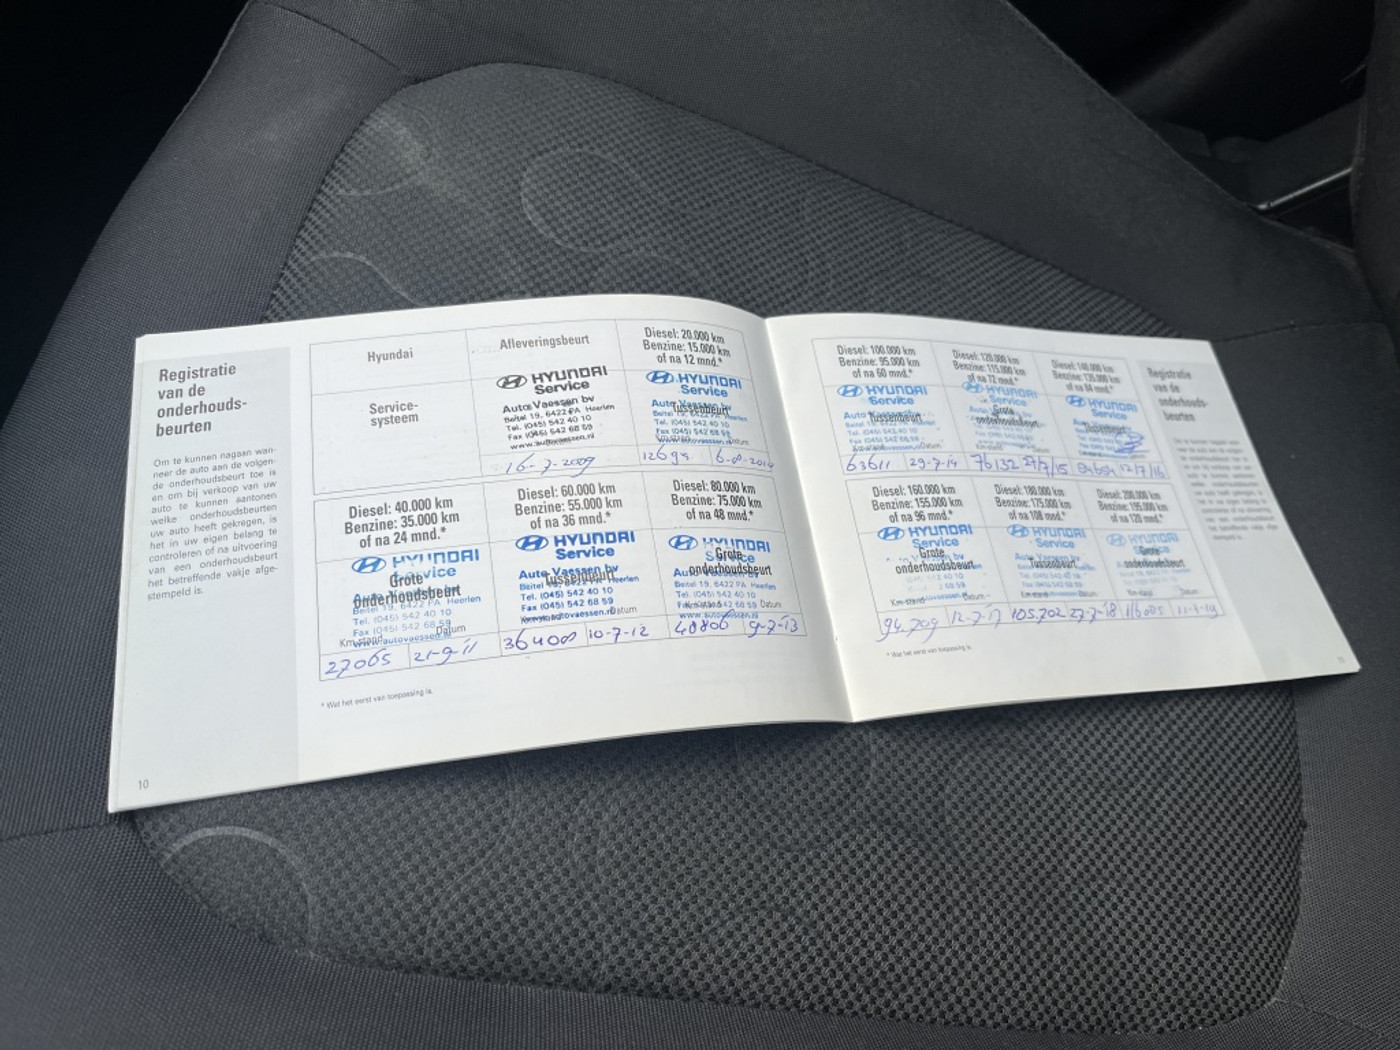 Registratie
van de
onderhouds-
beurten
Om te kunnen nagaan wan-
neer de auto aan de volgen-
de onderhoudsbeurt toe is
en om bij verkoop van uw
auto te kunnen aantonen
welke onderhoudsbeurten
uw auto heeft gekregen, is
het in uw eigen belang te
controleren of na uitvoering
van een onderhoudsbeurt
het betreffende vakje afge-
stempeld is.
10
Hyundai
Service-
systeem
Afleveringsbeurt
HYUNDAI
Service
Auto Vaessen bv
Beitel 19, 6422 PA Heerlen
Tel. (045) 542 40 10
Fax (045) 542 68 59
www.autovaessen.nl
16-7-2009
Diesel: 20.000 km
Benzine: 15.000 km
of na 12 mnd.*
HYUNDAI
Service
Auto Vaessen bv
Tussenbeurt
Beitel 19, 6422 PA Heerlen
Tel. (045) 542 40 10
Fax (045) 542 68 59
www.autovaessen.nl
Datum
Diesel: 40.000 km
Benzine: 35.000 km
of na 24 mnd.*
HYUNDAI
Service
Grote
onderhoudsbeurt
Beitel 19, 6422 PA Heerlen
Tel. (045) 542 40 10
Fax (045) 542 68 59
Km-stand Datum
www.autovaessen.nl
27065 21-9-11
Diesel: 60.000 km
Benzine: 55.000 km
of na 36 mnd.*
HYUNDAI
Service
Auto Vaessen bv
Tussenbeurt
Beitel 19, 6422 PA Heerlen
Tel. (045) 542 40 10
Fax (045) 542 68 59
Datum
www.autovaessen.nl
36400 10-7-12
Diesel: 80.000 km
Benzine: 75.000 km
of na 48 mnd.*
HYUNDAI
Service
Grote
onderhoudsbeurt
Auto Vaessen bv
Beitel 19, 6422 PA Heerlen
Tel. (045) 542 40 10
Fax (045) 542 68 59
Km-stand Datum
www.autovaessen.nl
48806 9-7-13
* Wat het eerst van toepassing is.
Diesel: 100.000 km
Benzine: 95.000 km
of na 60 mnd.*
HYUNDAI
Service
Tussenbeurt
Tel. (045) 542 40 10
Fax (045) 542 68 59
Datum
63611 29-7-14
Diesel: 120.000 km
Benzine: 115.000 km
of na 72 mnd.*
HYUNDAI
Service
Grote
onderhoudsbeurt
76132 27/7/15
Diesel: 140.000 km
Benzine: 135.000 km
of na 84 mnd.*
HYUNDAI
Service
Tussenbeurt
12/7/16
Diesel: 160.000 km
Benzine: 155.000 km
of na 96 mnd.*
HYUNDAI
Service
Grote
onderhoudsbeurt
Km-stand Datum
94.709 12-7-17
Diesel: 180.000 km
Benzine: 175.000 km
of na 108 mnd.*
HYUNDAI
Service
Tussenbeurt
Km-stand Datum
105.702 27-7-18
Diesel: 200.000 km
Benzine: 195.000 km
of na 120 mnd.*
HYUNDAI
Service
Grote
onderhoudsbeurt
Km-stand Datum
* Wat het eerst van toepassing is.
Registratie
van de
onderhouds-
beurten